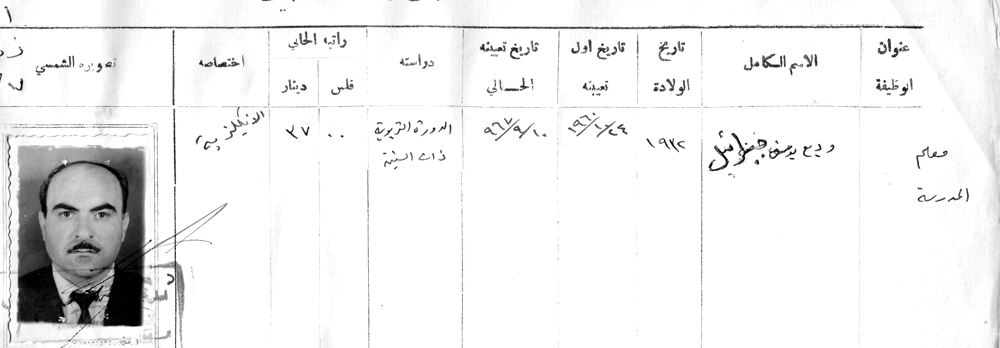 عنوان الوظيفة
الاسم الكامل
تاريخ الولادة
تاريخ اول تعيينه
تاريخ تعيينه الحالي
دراسته
راتبه الحالي
فلس
دينار
اختصاصه
تصويره الشمسي
معلم
المدرسة
وديع يوسف جبرائيل
١٩٣٢
١٩٦٠/١/٢٤
٩٦٧/٩/١٠
الدورة التربوية
ذات السنة
٠٠
٣٧
الانكليزية